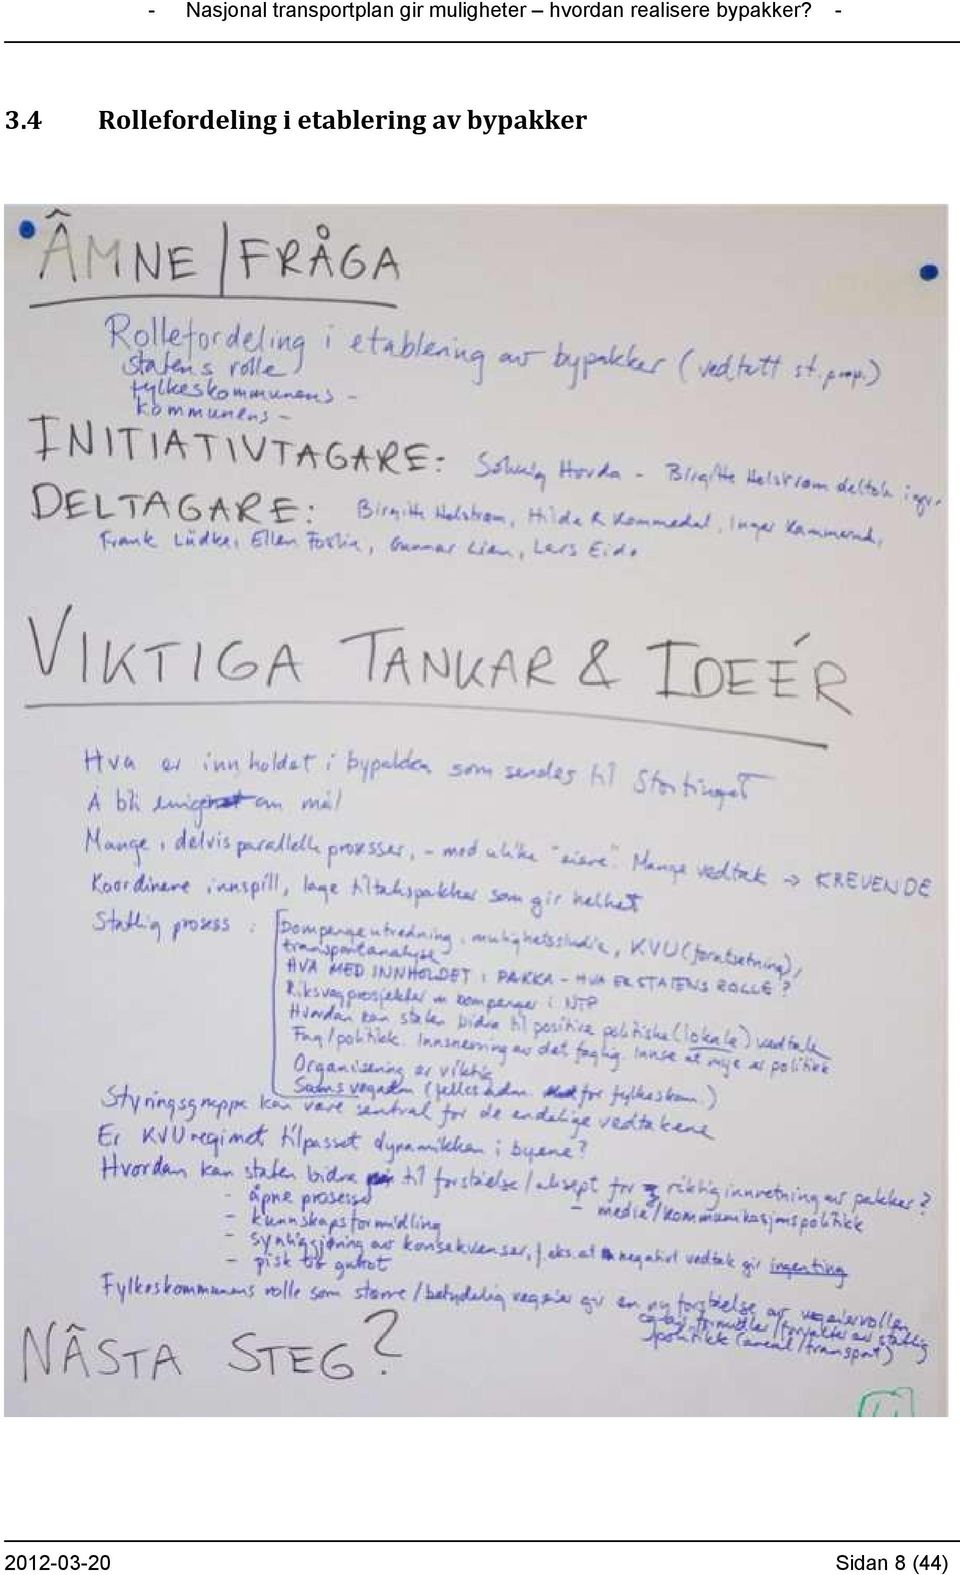 - Nasjonal transportplan gir muligheter – hvordan realisere bypakker? -
3.4 Rollefordeling i etablering av bypakker
ÄMNE/FRÅGA
Rollefordeling i etablering av bypakker (vedtatt st.prop.)
statens rolle
fylkeskommunens -
kommunens -
INITIATIVTAGARE: Solveig Hovda - Birgitte Helstrøm deltok
DELTAGARE: Birgitte Helstrøm, Hilde R Kommedal, Inger Kammerud,
Frank Lüdke, Ellen Foslie, Gunnar Lien, Lars Eide
VIKTIGA TANKAR & IDEÉR
Hva er innholdet i bypakken som sendes til Stortinget
Å bli enige om mål
Mange, delvis parallelle prosesser, - med ulike "eiere". Mange vedtak → KREVENDE
Koordinere innspill, lage tiltakspakker som gir helhet
Statlig prosess : bompengeutredning, mulighetsstudie, KVU (forutsetning),
transportanalyse
HVA MED INNHOLDET I PAKKA - HVA ER STATENS ROLLE?
Riksvegprosjekter m bompenger i NTP
Hvordan kan staten bidra til positive politiske (lokale) vedtak
Fag/politikk. Innsnevring av det faglig. Innse at mye er politikk
Organisering er viktig
Sams vegadm (felles adm. for fylkeskom.)
Styringsgruppe kan være sentral for de endelige vedtakene
Er KVU regimet tilpasset dynamikken i byene?
Hvordan kan staten bidra til forståelse/aksept for riktig innretning av pakker?
- åpne prosesser - medie/kommunikasjonspolitikk
- kunnskapsformidling
- synliggjøring av konsekvenser, f.eks. at negativt vedtak gir ingenting
- pisk og gulrot
Fylkeskommunens rolle som større/betydelig vegeier gir en ny forståelse av vegeierrollen
og av formidler/forvalter av statlig
politikk (areal/transport)
NÄSTA STEG?
2012-03-20 Sidan 8 (44)